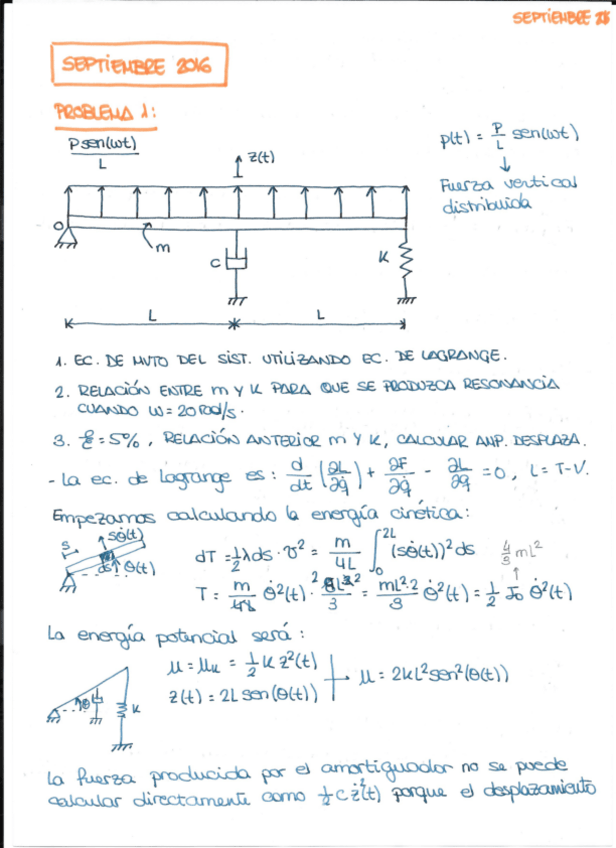 SEPTIEMBRE
SEPTIEMBRE 2016
PROBLEMA 1:
P sen(ωt)
L
z(t)
p(t) = P/L sen(ωt)
↓
Fuerza vertical
distribuida
O
m
C
K
L
L
1. EC. DE MVTO DEL SIST. UTILIZANDO EC. DE LAGRANGE.
2. RELACIÓN ENTRE m Y K PARA QUE SE PRODUZCA RESONANCIA
CUANDO ω = 20 rad/s.
3. ξ = 5%, RELACIÓN ANTERIOR m Y K, CALCULAR AMP. DESPLAZA.
- La ec. de Lagrange es: d/dt (∂L/∂q̇) + ∂F/∂q̇ - ∂L/∂q = 0, L = T-V.
Empezamos calculando la energía cinética:
sθ̇(t)
s
ds
θ(t)
dT = 1/2 λds · v² = m/4L ∫₀^2L (sθ̇(t))² ds
4/3 mL²
↑
T = m/4L θ̇²(t) · 8L³/3 = mL²·2/3 θ̇²(t) = 1/2 J₀ θ̇²(t)
La energía potencial será:
θ
K
μ = μκ = 1/2 K z²(t)
z(t) = 2L sen(θ(t))
μ = 2kL² sen²(θ(t))
La fuerza producida por el amortiguador no se puede
calcular directamente como 1/2 c ż²(t) porque el desplazamiento